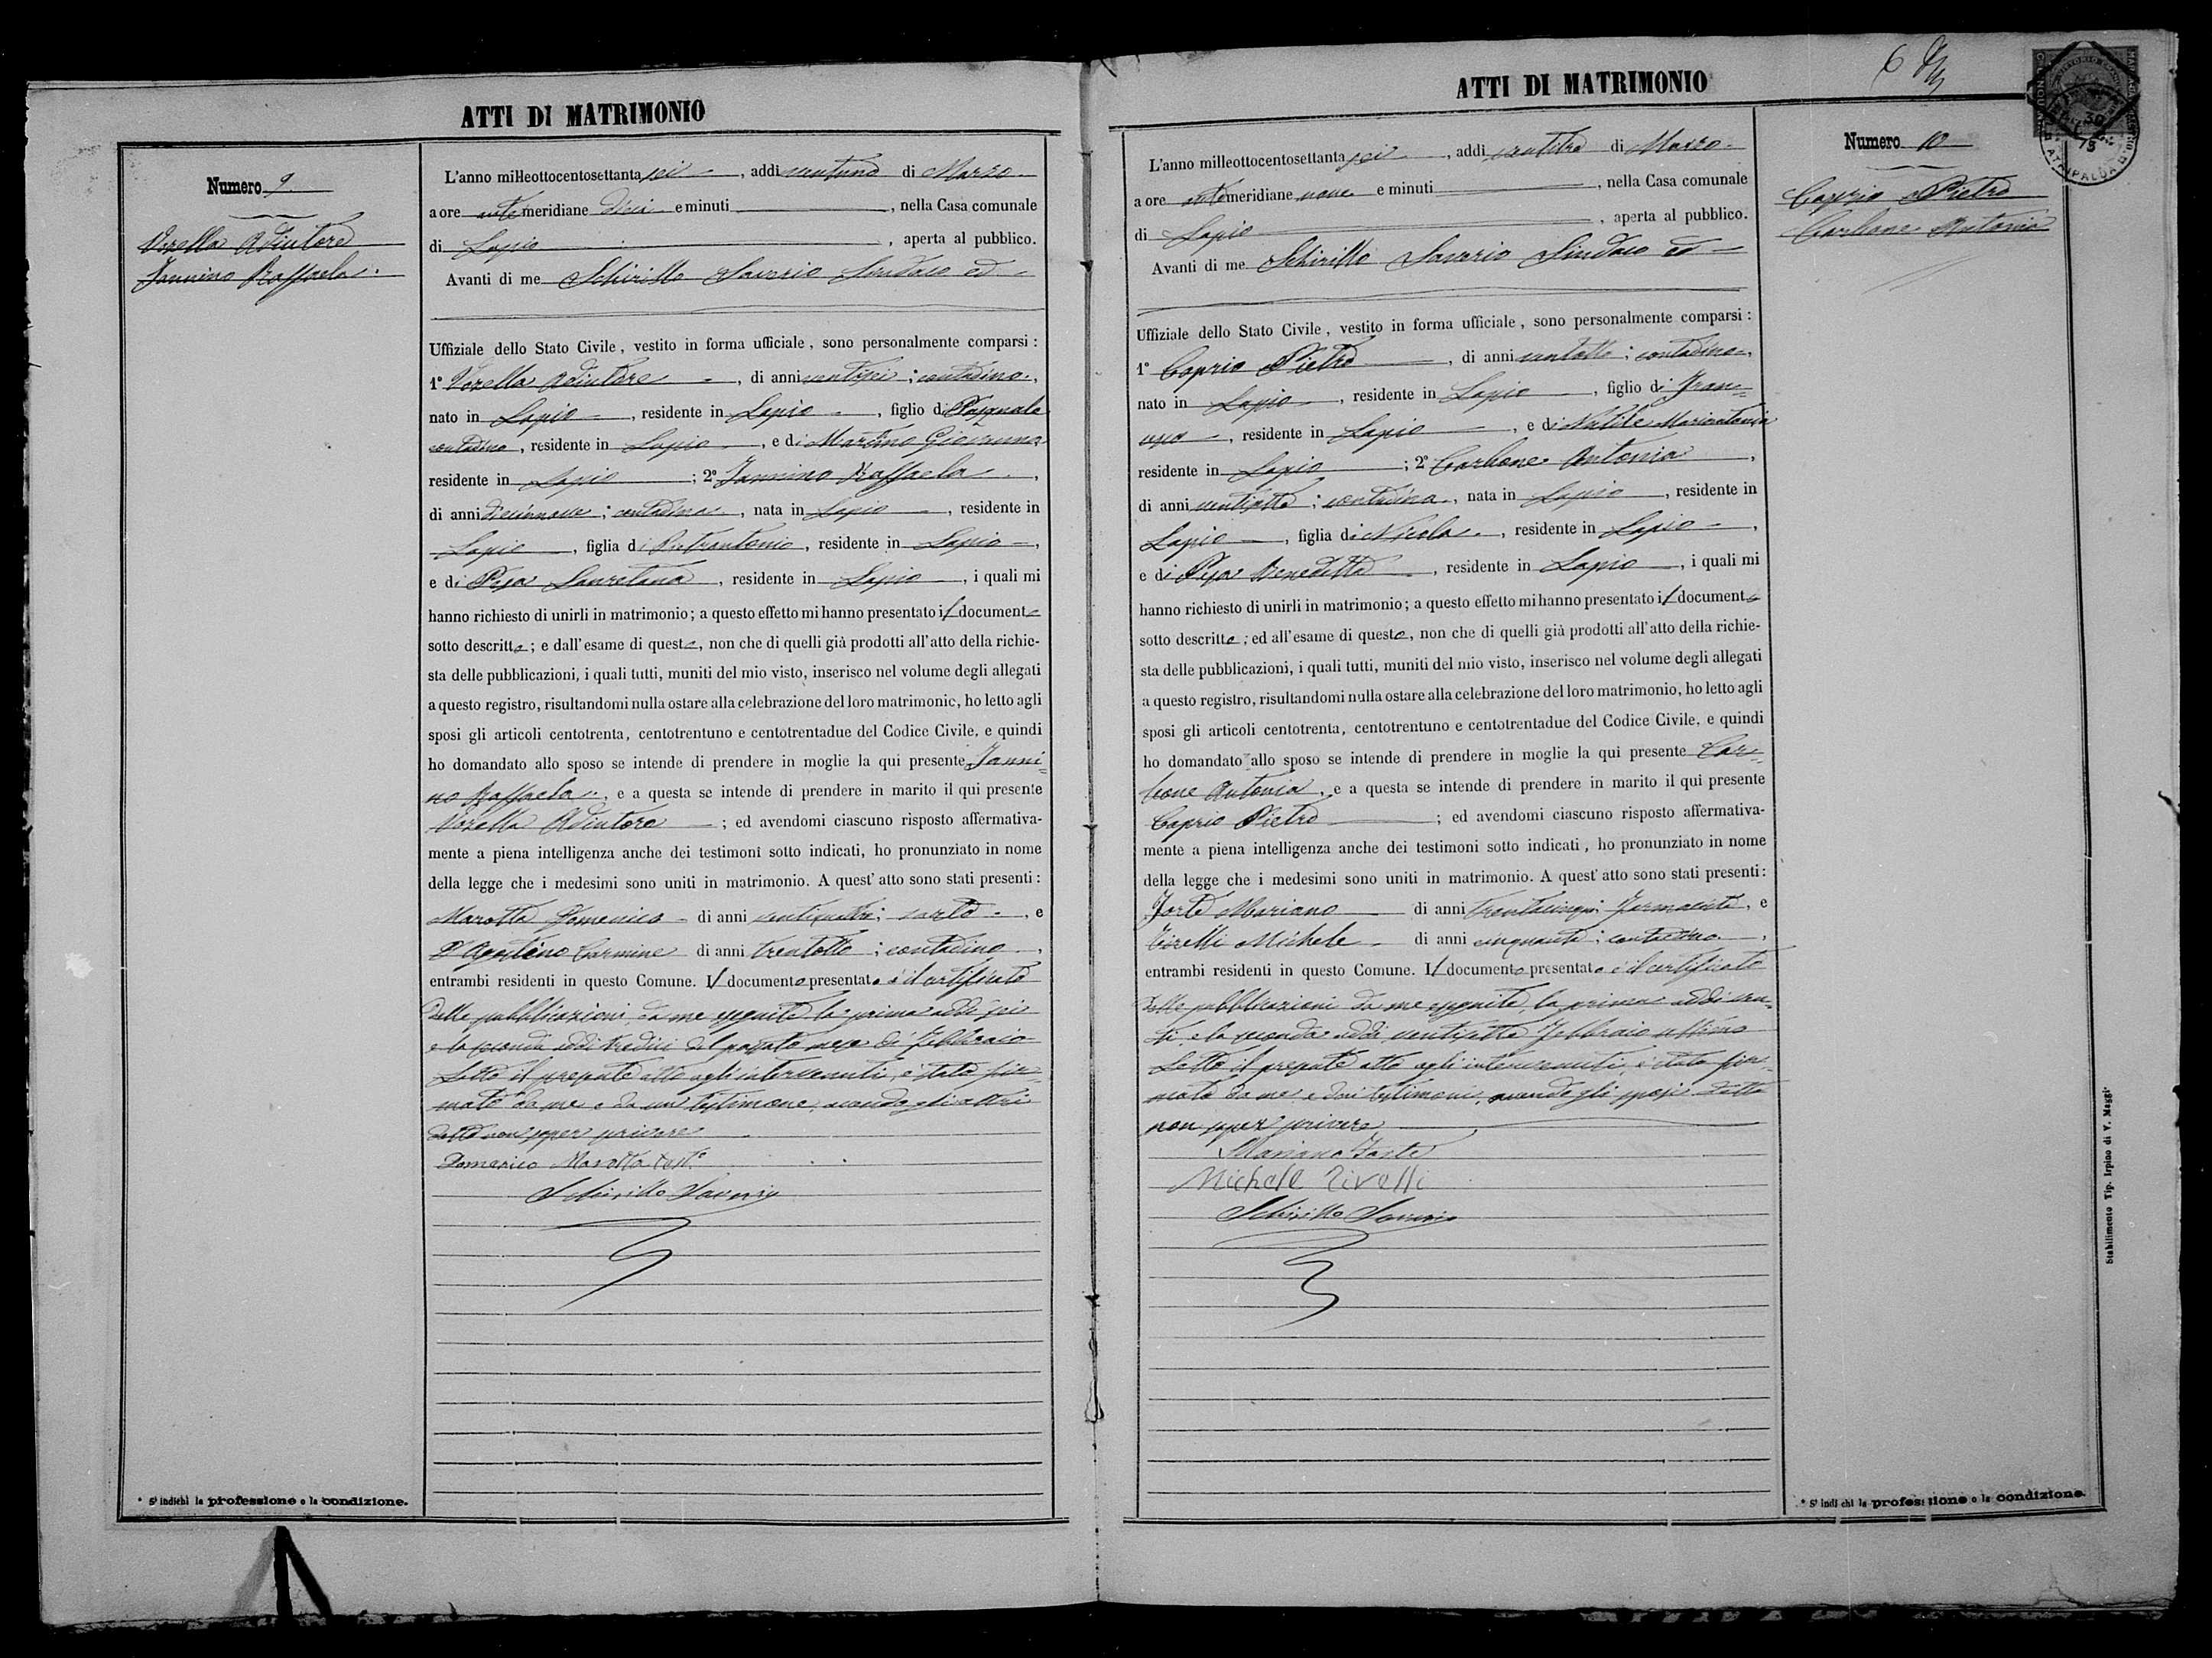 ATTI DI MATRIMONIO
Numero 9.
Vozella Adiutore
Jannino Raffaela
L'anno milleottocentosettanta sei, addi ventuno di Marzo
a ore antemeridiane dieci e minuti, nella Casa comunale
di Lapio, aperta al pubblico.
Avanti di me Schirillo Saverio Sindaco ed
Uffiziale dello Stato Civile, vestito in forma ufficiale, sono personalmente comparsi:
1° Vozella Adiutore, di anni ventisei; contadino,
nato in Lapio, residente in Lapio, figlio di Pasquale
contadino, residente in Lapio, e di Martino Giovanna
residente in Lapio; 2° Jannino Raffaela,
di anni diecinnove; contadina, nata in Lapio, residente in
Lapio, figlia di Pietrantonio, residente in Lapio,
e di Pisa Lauretana, residente in Lapio, i quali mi
hanno richiesto di unirli in matrimonio; a questo effetto mi hanno presentato il documento
sotto descritto; e dall'esame di questo, non che di quelli già prodotti all'atto della richie-
sta delle pubblicazioni, i quali tutti, muniti del mio visto, inserisco nel volume degli allegati
a questo registro, risultandomi nulla ostare alla celebrazione del loro matrimonio, ho letto agli
sposi gli articoli centotrenta, centotrentuno e centotrentadue del Codice Civile, e quindi
ho domandato allo sposo se intende di prendere in moglie la qui presente Janni=
no Raffaela, e a questa se intende di prendere in marito il qui presente
Vozella Adiutore; ed avendomi ciascuno risposto affermativa-
mente a piena intelligenza anche dei testimoni sotto indicati, ho pronunziato in nome
della legge che i medesimi sono uniti in matrimonio. A quest'atto sono stati presenti:
Marotta Domenico di anni ventiquattro; sarto, e
D'Agostino Carmine di anni trentotto; contadino,
entrambi residenti in questo Comune. Il documento presentato è il certificato
delle pubblicazioni da me eseguite la prima addi sei
e la seconda addi tredici del passato mese di Febbraio
Letto il presente atto agli intervenuti, è stato fir=
mato da me e da un testimone, avendo gli altri
detto non saper scrivere
Domenico Marotta test.e
Schirillo Saverio
* Si indichi la professione o la condizione.
ATTI DI MATRIMONIO
6
Numero 10
Caprio Pietro
Carbone Antonia
L'anno milleottocentosettanta sei, addi ventitre di Marzo
a ore antemeridiane nove e minuti, nella Casa comunale
di Lapio, aperta al pubblico.
Avanti di me Schirillo Saverio Sindaco ed
Uffiziale dello Stato Civile, vestito in forma ufficiale, sono personalmente comparsi:
1° Caprio Pietro, di anni ventotto; contadino,
nato in Lapio, residente in Lapio, figlio di Fran=
cesco, residente in Lapio, e di Natile Mariantonia
residente in Lapio; 2° Carbone Antonia,
di anni ventisette; contadina, nata in Lapio, residente in
Lapio, figlia di Nicola, residente in Lapio,
e di Pisa Benedetta, residente in Lapio, i quali mi
hanno richiesto di unirli in matrimonio; a questo effetto mi hanno presentato il documento
sotto descritto; ed all'esame di questo, non che di quelli già prodotti all'atto della richie-
sta delle pubblicazioni, i quali tutti, muniti del mio visto, inserisco nel volume degli allegati
a questo registro, risultandomi nulla ostare alla celebrazione del loro matrimonio, ho letto agli
sposi gli articoli centotrenta, centotrentuno e centotrentadue del Codice Civile, e quindi
ho domandato allo sposo se intende di prendere in moglie la qui presente Car=
bone Antonia, e a questa se intende di prendere in marito il qui presente
Caprio Pietro; ed avendomi ciascuno risposto affermativa-
mente a piena intelligenza anche dei testimoni sotto indicati, ho pronunziato in nome
della legge che i medesimi sono uniti in matrimonio. A quest'atto sono stati presenti:
Forte Mariano di anni trentacinque; Farmacista, e
Cirelli Michele di anni cinquanta; contadino,
entrambi residenti in questo Comune. Il documento presentato è il certificato
delle pubblicazioni da me eseguite, la prima addi ven=
ti, e la seconda addi ventisette Febbraio ultimo
Letto il presente atto agli intervenuti, è stato fir=
mato da me e dai testimoni, avendo gli sposi detto
non saper scrivere
Mariano Forte
Michele Cirelli
Schirillo Saverio
* Si indichi la professione o la condizione.
Stabilimento Tip. Irpino di V. Maggi
ATRIPALDA